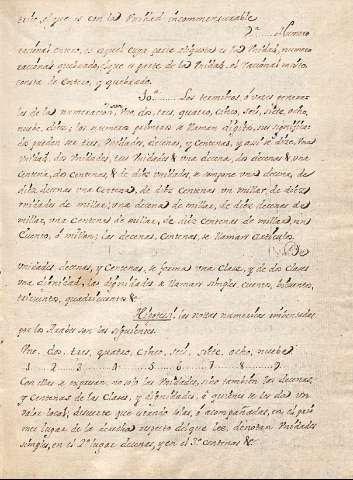 ésto, ó que es con la Vnidad incommensurable
2ª. el Numero
racional entero, es aquel cuya parte aliquota es la Vnidad, numero
racional quebrado, el que es parte de la Vnidad, el racional mixto
consta de entero, y quebrado.
3ª. Los terminos, ó voces
les de la numeracion son, Vno, dos, tres, quatro, cinco, seis, siete, ocho,
nueve, diez, los numeros primeros se llaman digitos, sus
pueden ser tres, Vnidades, decenas, y centenas, y assi se dize, Vna
vnidad, dos Vnidades, tres Vnidades & una decena, dos decenas & una
centena, dos centenas, & de diez vnidades se compone una decena, de
diez decenas una centena, de diez centenas un millar, de diez
vnidades de millar, una decena de millar, de diez decenas de
millar, una centena de millar, de diez centenas de millar, un
Cuento, ó millon; las decenas, centenas, se llaman articulos.
De
vnidades decenas, y centenas se forma una Clase, y de dos clases
una dignidad, las dignidades se llaman simples cuento, bicuento,
tricuento, quadricuento &
Hipotesi. las notas numerales
por los Arabes son las siguientes.
Vno, dos, tres, quatro, cinco, seis, siete, ocho, nueve
1.....2.....3.....4.....5.....6.....7.....8.....9.
Con ellas se expresan no solo las Vnidades, sino tambien las decenas,
y Centenas de las Clases, y dignidades, á quienes se les da un
valor local, de suerte que estando solas, ó acompañadas, en el pri-
mer lugar de la derecha respecto del que lee, denotan Vnidades
simples, en el 2º lugar decenas, y en el 3º centenas &c